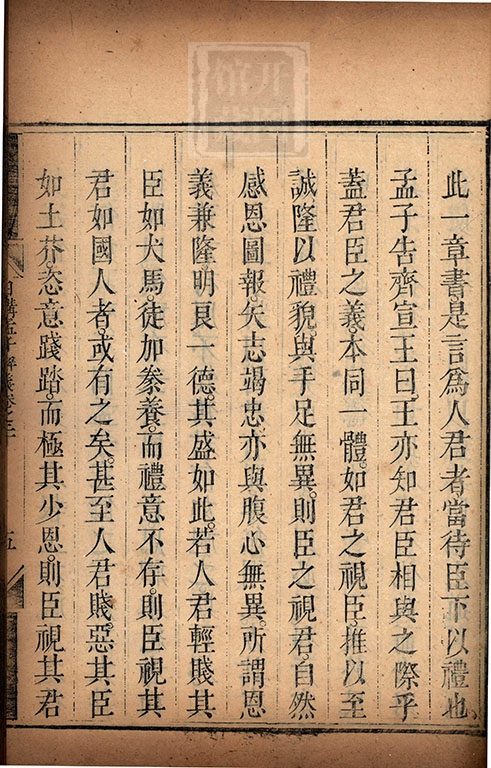 此一章書是言爲人君者當待臣下以禮也
孟子告齊宣王曰王亦知君臣相與之際乎
蓋君臣之義本同一體如君之視臣推以至
誠隆以禮貌與手足無異則臣之視君自然
感恩圖報矢志竭忠亦與腹心無異所謂恩
義兼隆明良一德其盛如此若人君輕賤其
臣如犬馬徒加豢養而禮意不存則臣視其
君如國人者或有之矣甚至人君賤惡其臣
如土芥恣意踐踏而極其少恩則臣視其君
日講
解義卷之三
五